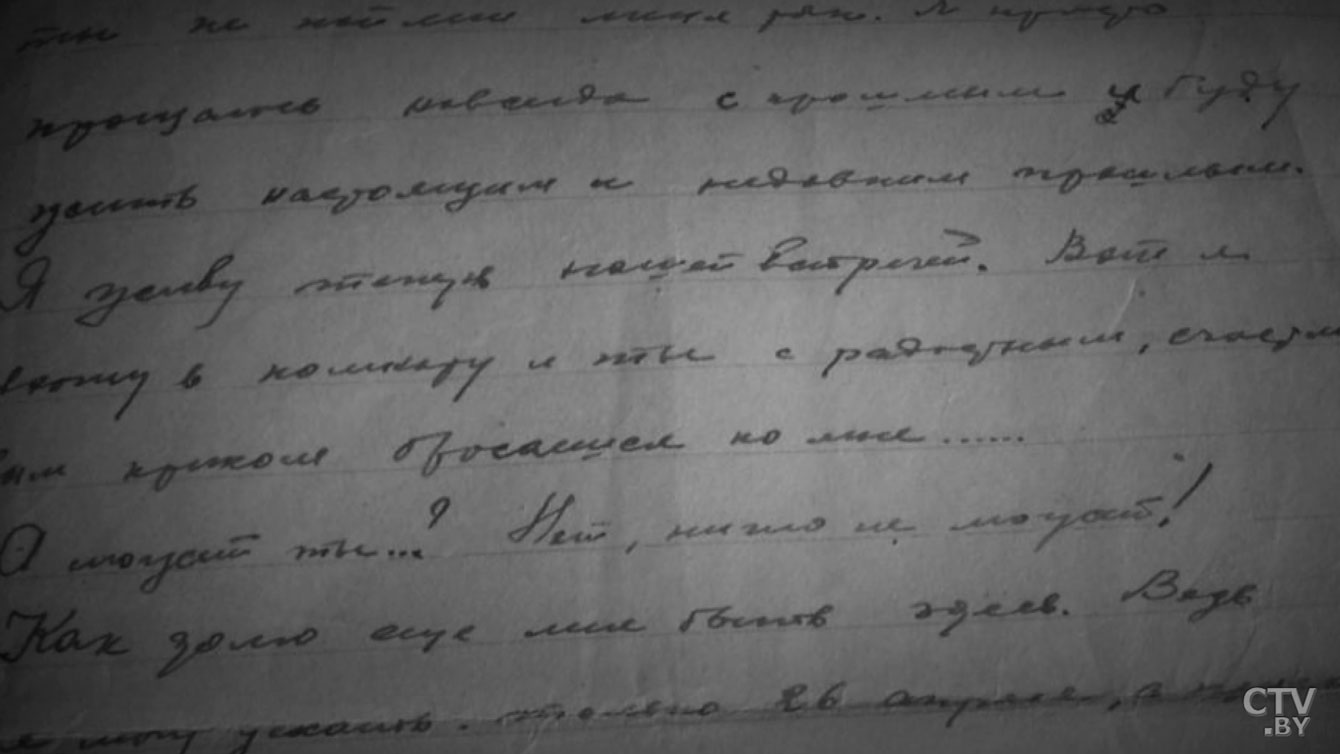 ты не меня так. Я
прощаюсь навсегда с прошлым и буду
жить настоящим и недавним прошлым.
Я живу только нашей встречей. Вот я
вхожу в комнату и ты с радостным, счастли
вым криком бросаешься ко мне......
А может ты...? Нет, никто не может!
Как долго еще мне быть здесь. Ведь
я могу уехать только 26 апреля, а
CTV
.BY